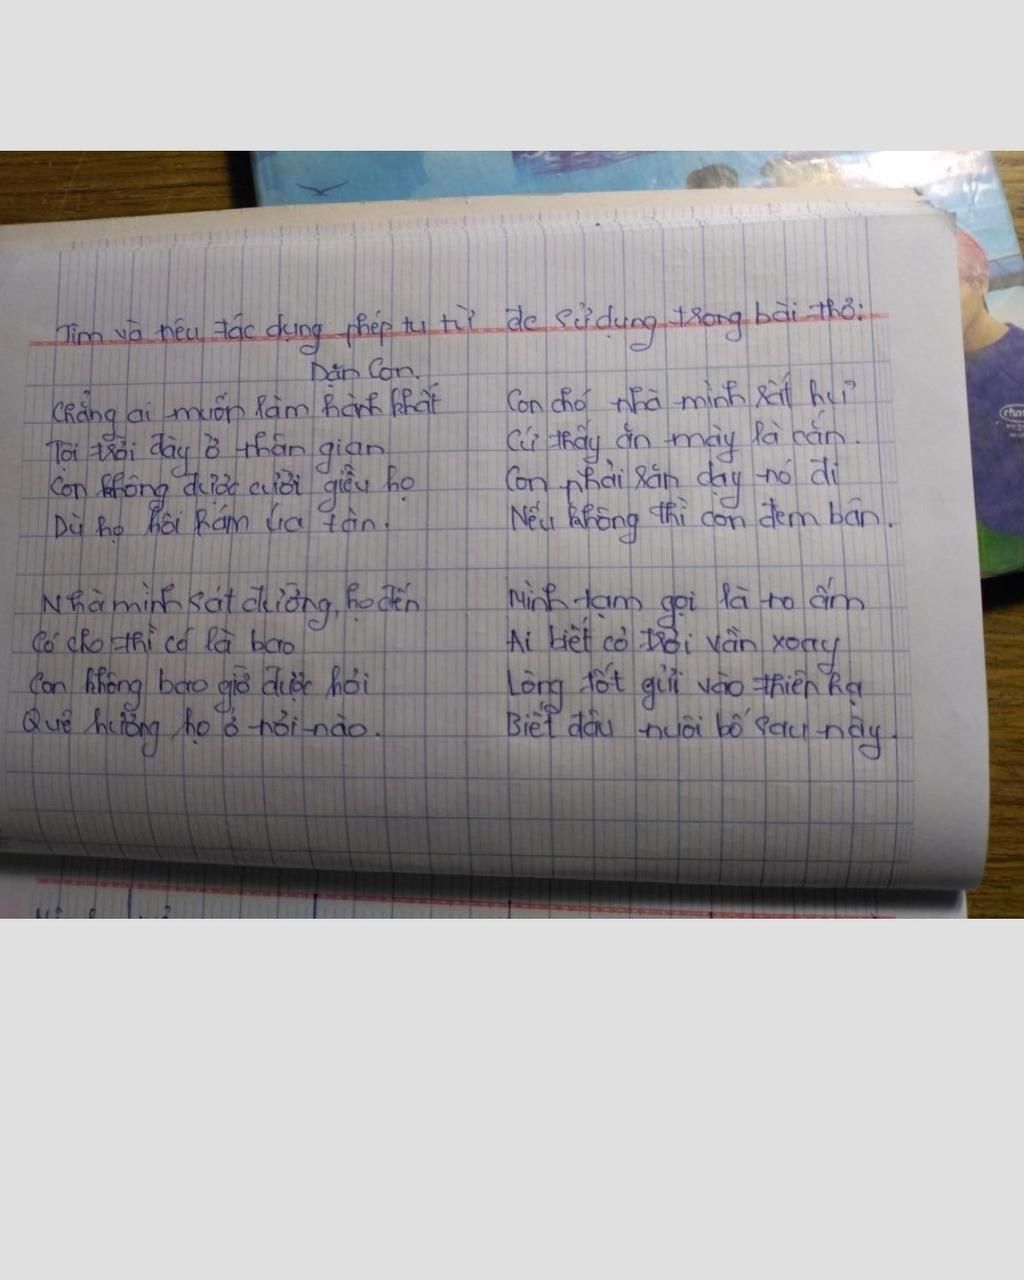 Tìm và nêu tác dụng phép tu từ đc sử dụng trong bài thơ:
Dặn Con.
Chẳng ai muốn làm hành khất
Tội trời đày ở thân gian
Con không được cười giễu họ
Dù họ hôi hám úa tàn.
Nhà mình sát đường, họ đến
Có cho thì có là bao
Con không bao giờ được hỏi
Quê hương họ ở nơi nào.
Con chó nhà mình rất hư
Cứ thấy ăn mày là cắn.
Con phải răn dạy nó đi
Nếu không thì con đem bán.
Mình tạm gọi là no ấm
Ai biết cơ trời vần xoay
Lòng tốt gửi vào thiên hạ
Biết đâu nuôi bố sau này.